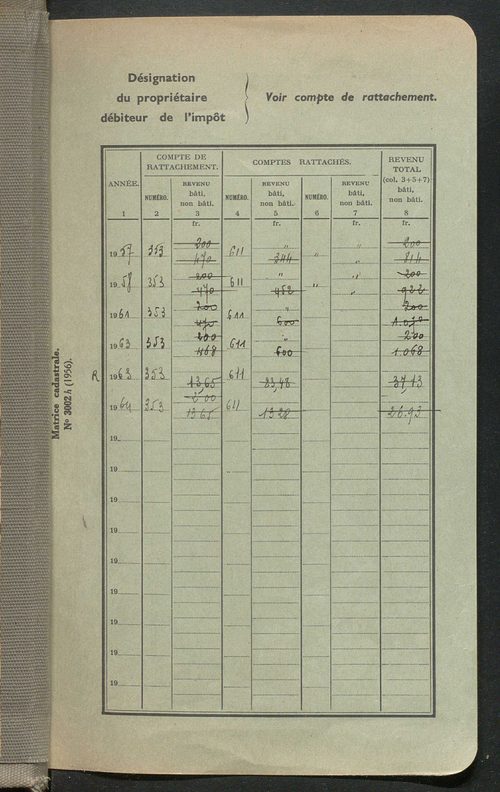 Désignation
du propriétaire
débiteur de l'impôt
Voir compte de rattachement.
Matrice cadastrale.
N° 3002 h (1956).
ANNÉE.
COMPTE DE RATTACHEMENT.
COMPTES RATTACHÉS.
REVENU TOTAL (col. 3+5+7) bâti, non bâti.
NUMÉRO.
REVENU bâti, non bâti.
NUMÉRO.
REVENU bâti, non bâti.
NUMÉRO.
REVENU bâti, non bâti.
1 2 3 4 5 6 7 8
fr. fr. fr. fr.
200 " " 200
1957 353 470 611 344 " " 814
200 " " 200
1958 353 470 611 452 " " 922
200 " 200
1961 353 470 611 600 1.070
200 " 200
1963 353 468 611 600 1.068
R 1963 353 13,65 611 23,48 37,13
2 00
1964 353 13 65 611 13 28 26.93
19
19
19
19
19
19
19
19
19